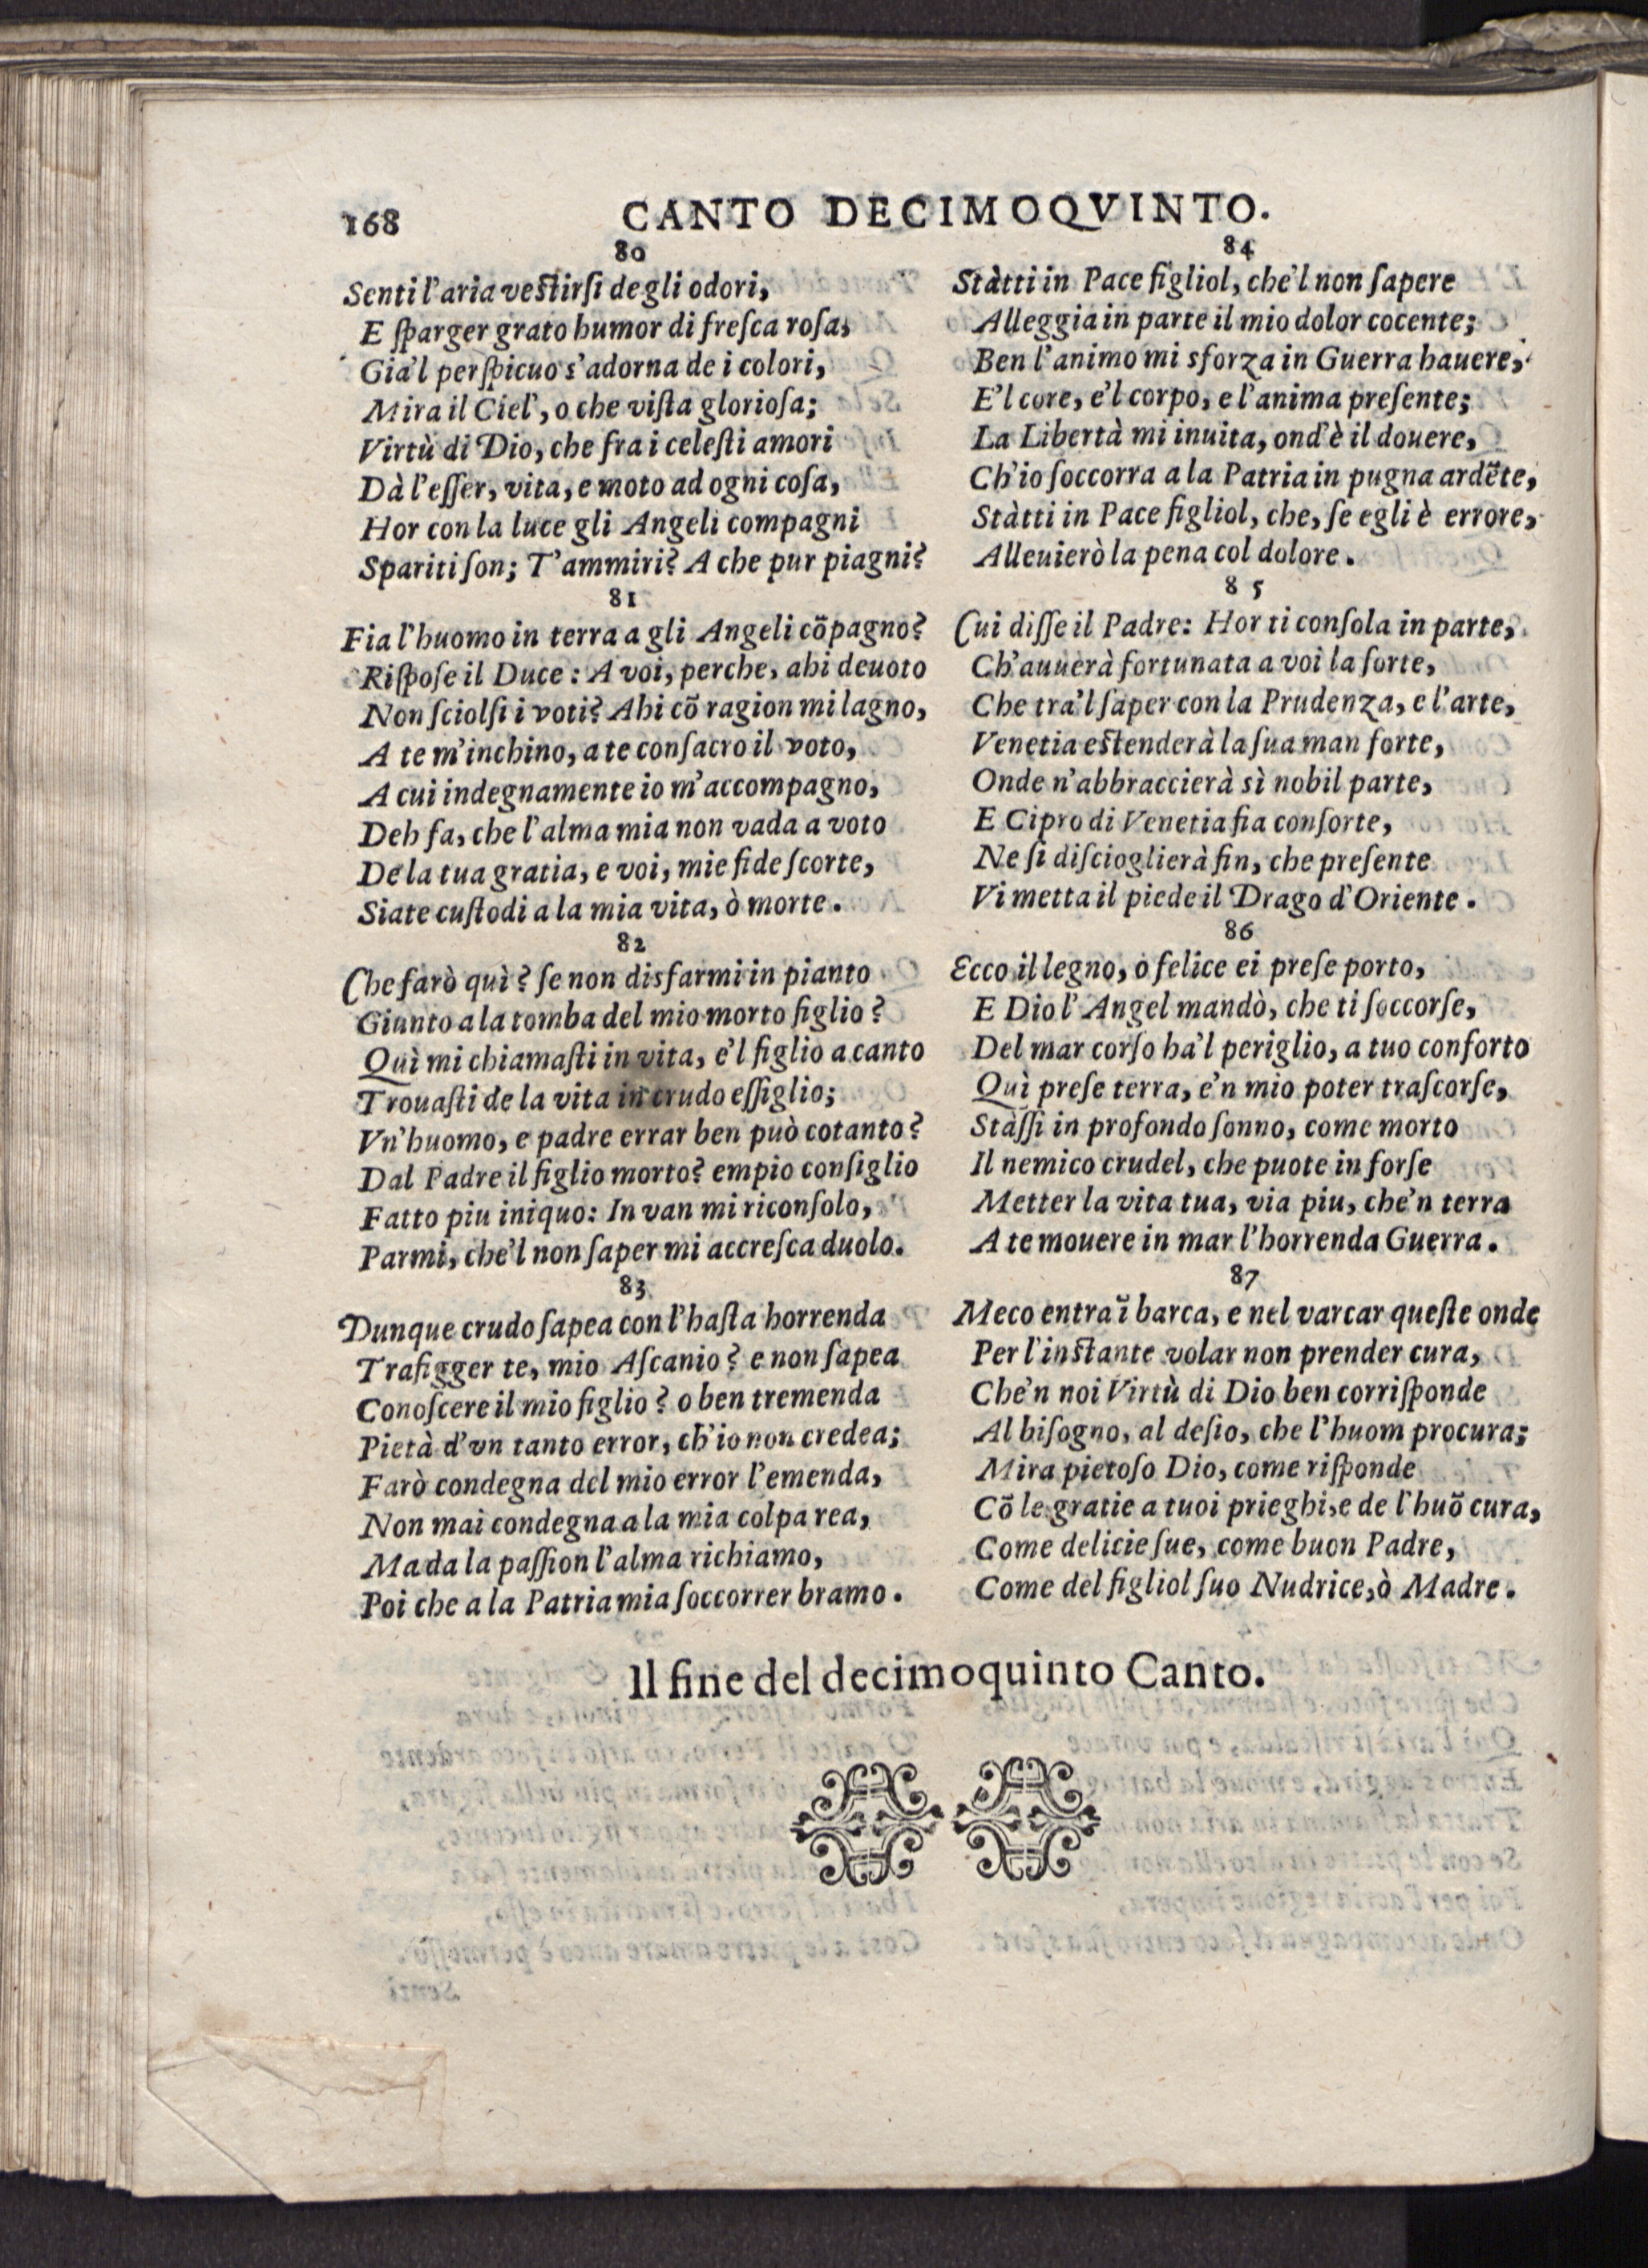 168
CANTO DECIMOQVINTO.
80
Senti l'aria vestirſi de gli odori,
E ſparger grato humor di freſca roſa,
Gia'l perſpicuo s'adorna de i colori,
Mira il Ciel', o che viſta glorioſa;
Virtù di Dio, che fra i celeſti amori
Dà l'eſſer, vita, e moto ad ogni coſa,
Hor con la luce gli Angeli compagni
Spariti ſon; T'ammiri? A che pur piagni?
81
Fia l'huomo in terra a gli Angeli cõpagno?
Riſpoſe il Duce: A voi, perche, ahi deuoto
Non ſciolſi i voti? Ahi cõ ragion mi lagno,
A te m'inchino, a te conſacro il voto,
A cui indegnamente io m'accompagno,
Deh fa, che l'alma mia non vada a voto
De la tua gratia, e voi, mie fide ſcorte,
Siate cuſtodi a la mia vita, ò morte.
82
Che farò quì? ſe non disfarmi in pianto
Giunto a la tomba del mio morto figlio?
Quì mi chiamaſti in vita, e'l figlio a canto
Trouaſti de la vita in crudo eſſiglio;
Vn'huomo, e padre errar ben può cotanto?
Dal Padre il figlio morto? empio conſiglio
Fatto piu iniquo: In van mi riconſolo,
Parmi, che'l non ſaper mi accreſca duolo.
83
Dunque crudo ſapea con l'haſta horrenda
Trafigger te, mio Aſcanio? e non ſapea
Conoſcere il mio figlio? o ben tremenda
Pietà d'vn tanto error, ch'io non credea;
Farò condegna del mio error l'emenda,
Non mai condegna a la mia colpa rea,
Ma da la paſſion l'alma richiamo,
Poi che a la Patria mia ſoccorrer bramo.
84
Stàtti in Pace figliol, che'l non ſapere
Alleggia in parte il mio dolor cocente;
Ben l'animo mi sforza in Guerra hauere,
E'l core, e'l corpo, e l'anima preſente;
La Libertà mi inuita, ond'è il douere,
Ch'io ſoccorra a la Patria in pugna ardẽte,
Stàtti in Pace figliol, che, ſe egli è errore,
Alleuierò la pena col dolore.
85
Cui diſſe il Padre: Hor ti conſola in parte,
Ch'auuerà fortunata a voi la ſorte,
Che tra'l ſaper con la Prudenza, e l'arte,
Venetia estenderà la ſua man forte,
Onde n'abbraccierà sì nobil parte,
E Cipro di Venetia fia conſorte,
Ne ſi diſcioglierà fin, che preſente
Vi metta il piede il Drago d'Oriente.
86
Ecco il legno, o felice ei preſe porto,
E Dio l'Angel mandò, che ti ſoccorſe,
Del mar corſo ha'l periglio, a tuo conforto
Quì preſe terra, e'n mio poter traſcorſe,
Stàſſi in profondo ſonno, come morto
Il nemico crudel, che puote in forſe
Metter la vita tua, via piu, che'n terra
A te mouere in mar l'horrenda Guerra.
87
Meco entra ĩ barca, e nel varcar queſte onde
Per l'instante volar non prender cura,
Che'n noi Virtù di Dio ben corriſponde
Al biſogno, al deſio, che l'huom procura;
Mira pietoſo Dio, come riſponde
Cõ le gratie a tuoi prieghi, e de l'huõ cura,
Come delicie ſue, come buon Padre,
Come del figliol ſuo Nudrice, ò Madre.
Il fine del decimoquinto Canto.